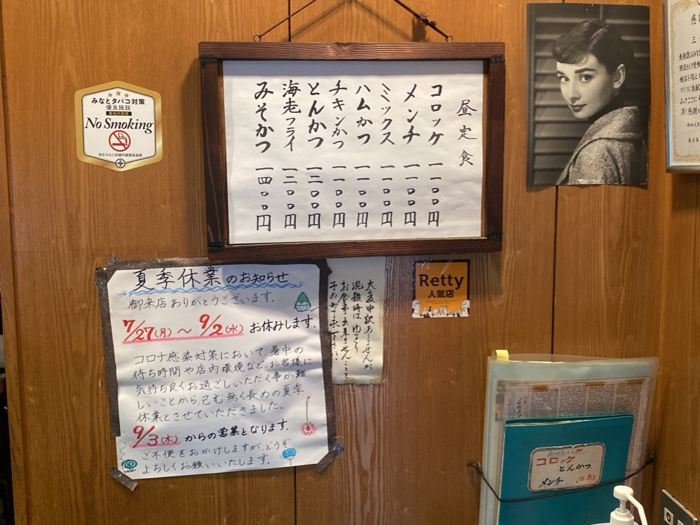 みなとタバコ対策
優良施設
No Smoking
昼定食
コロッケ 一一〇〇円
メンチ 一一〇〇円
ミックス 一一〇〇円
ハムかつ 一一〇〇円
チキンかつ 一一〇〇円
とんかつ 一二〇〇円
海老フライ 一二〇〇円
みそかつ 一四〇〇円
夏季休業のお知らせ
御来店ありがとうございます.
7/27(月)～9/2(水) お休みします.
コロナ感染対策において、暑中の
待ち時間や店内環境など、お客様に
気持ち良くお過ごしいただく事が難
しいことから、已む無く長めの夏季
休業とさせていただきました。
9/3(木)からの営業となります.
ご不便をおかけしますが、どうぞ
よろしくお願いいたします.
大変申訳ありませんが
混雑時はゆっくり
お食事出来ませんことを
Retty
人気店
コロッケ
とんかつ
メンチ